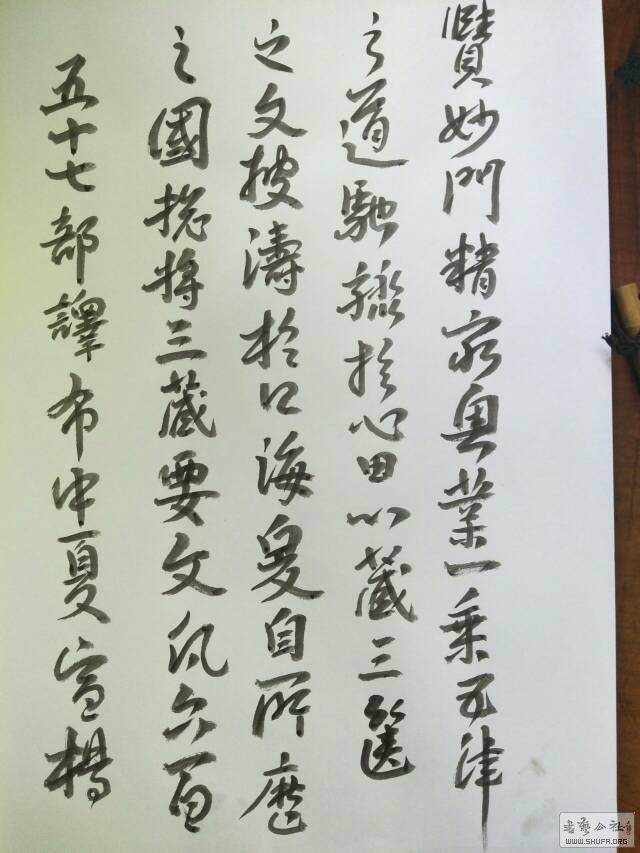 賾妙門精窮奧業一乘五律
之道馳驟於心田八藏三篋
之文波濤於口海爰自所歷
之國總將三藏要文凡六百
五十七部譯布中夏宣揚
書藝公社
WWW.SHUFA.ORG